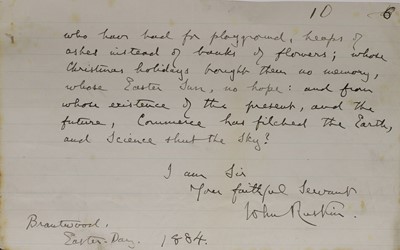 10 6
who have had for playground, heaps of
ashes instead of banks of flowers; whose
Christmas holidays brought them no memory,
whose Easter Sun, no hope: and from
whose existence of the present, and the
future, Commerce has filched the Earth,
and Science shut the Sky?
I am Sir
Your faithful Servant
John Ruskin.
Brantwood,
Easter-Day. 1884.